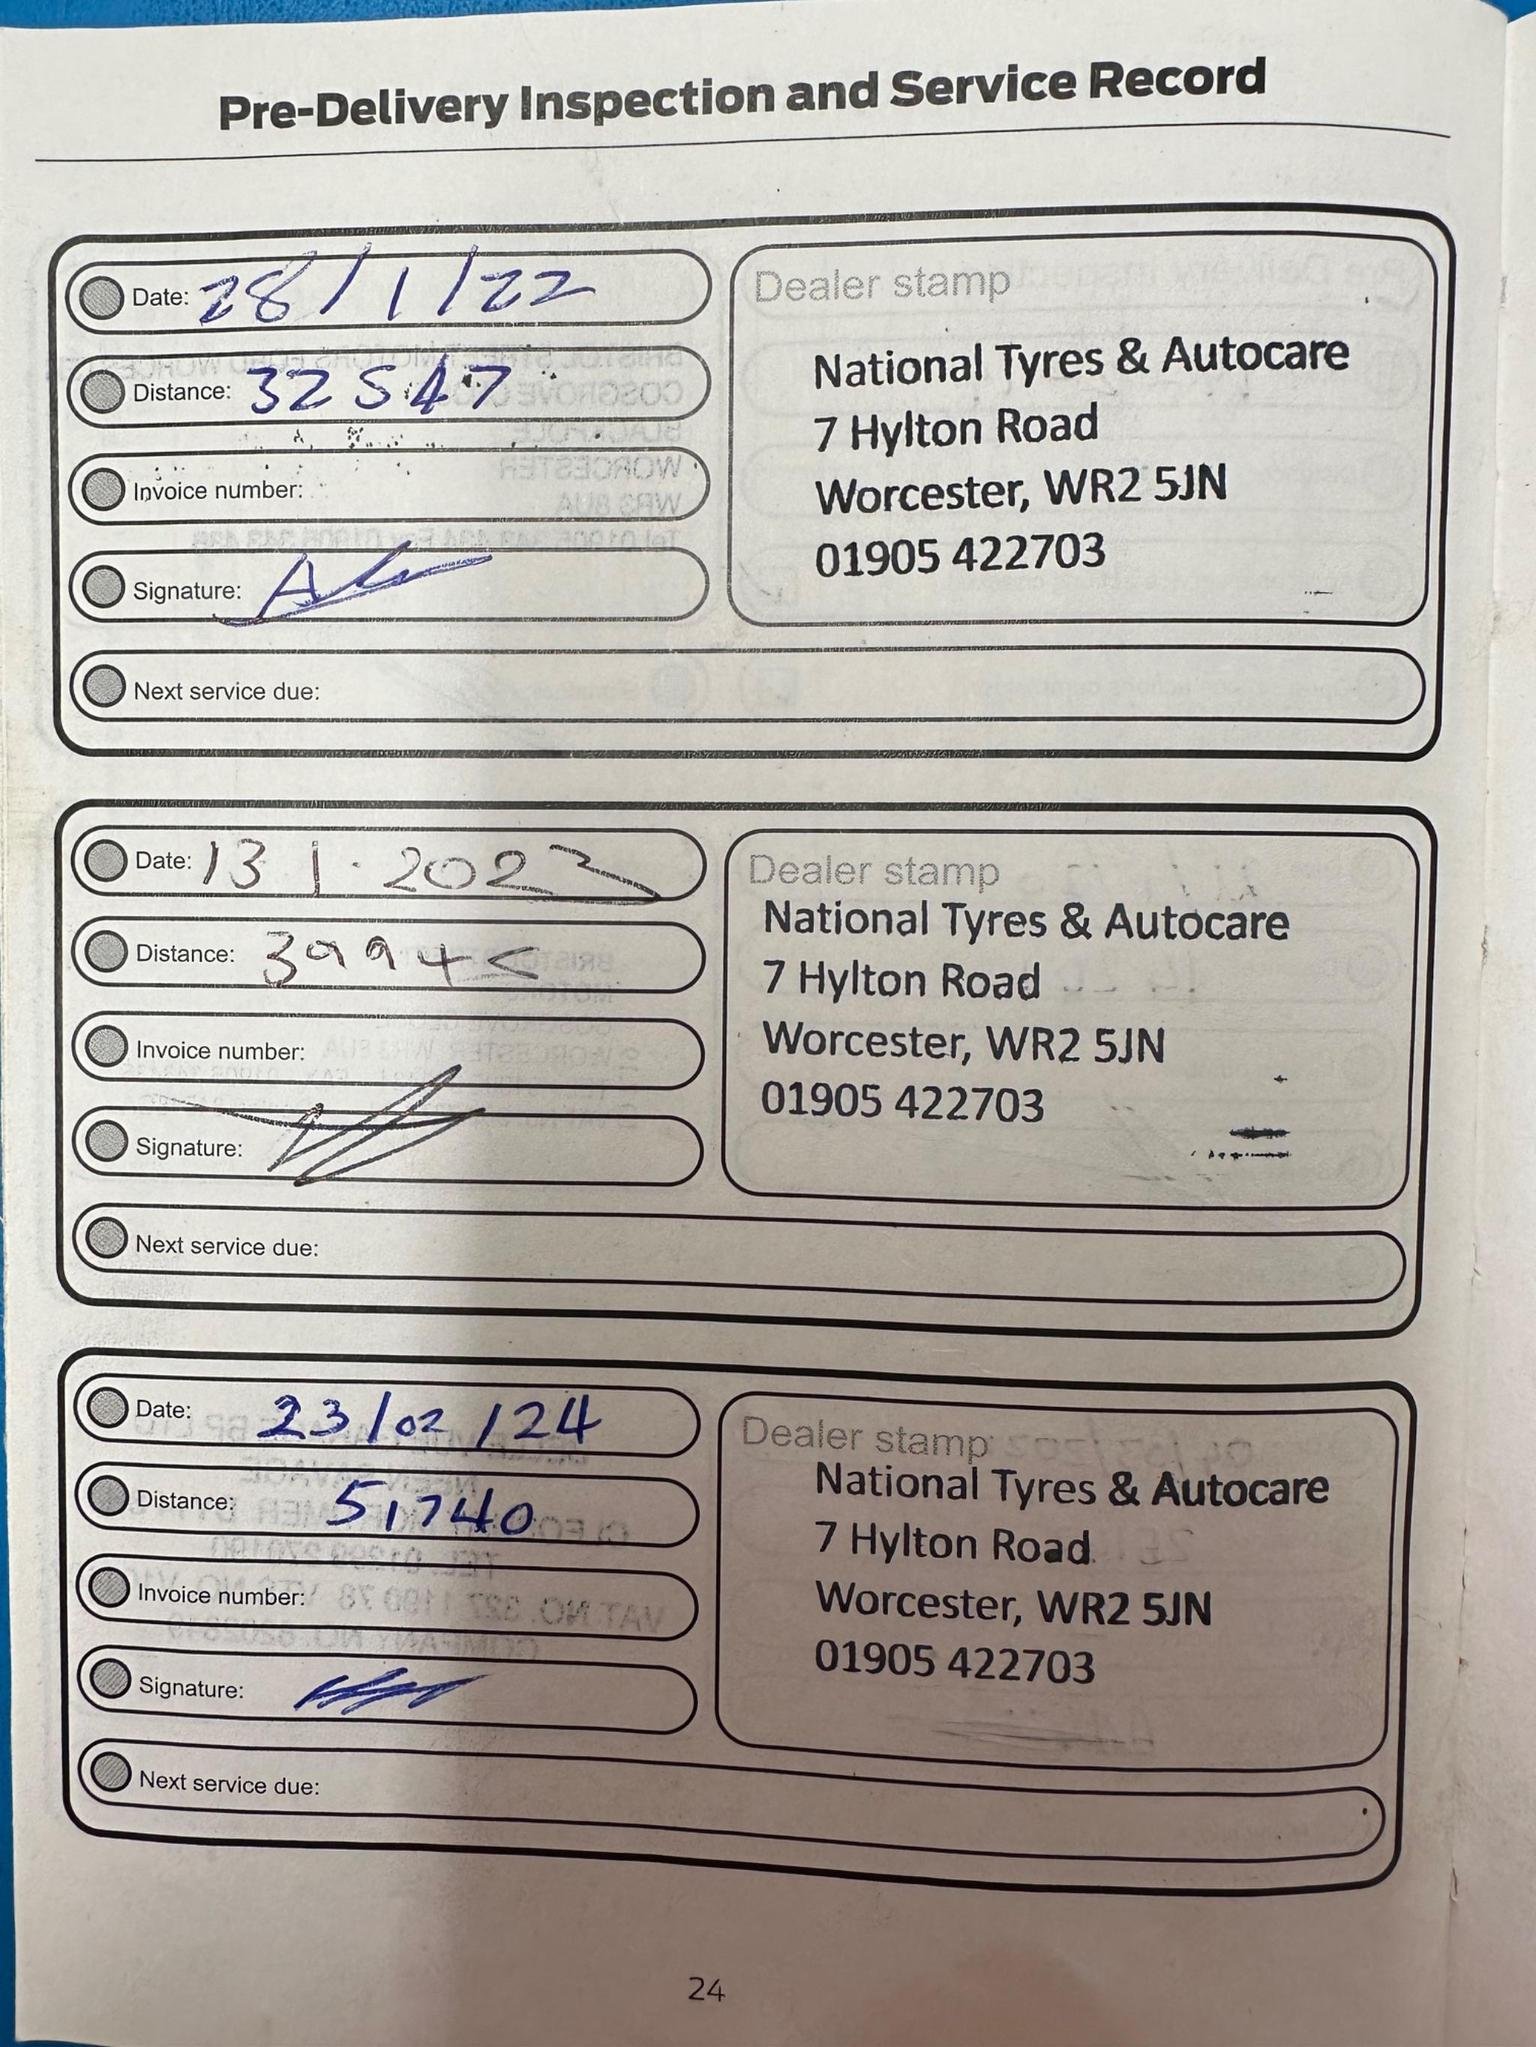 Pre-Delivery Inspection and Service Record
Date: 28/1/22
Distance: 32547
Invoice number:
Signature:
Next service due:
Dealer stamp
National Tyres & Autocare
7 Hylton Road
Worcester, WR2 5JN
01905 422703
Date: 13 1. 2023
Distance: 39945
Invoice number:
Signature:
Next service due:
Dealer stamp
National Tyres & Autocare
7 Hylton Road
Worcester, WR2 5JN
01905 422703
Date: 23/02/24
Distance: 51740
Invoice number:
Signature:
Next service due:
Dealer stamp
National Tyres & Autocare
7 Hylton Road
Worcester, WR2 5JN
01905 422703
24